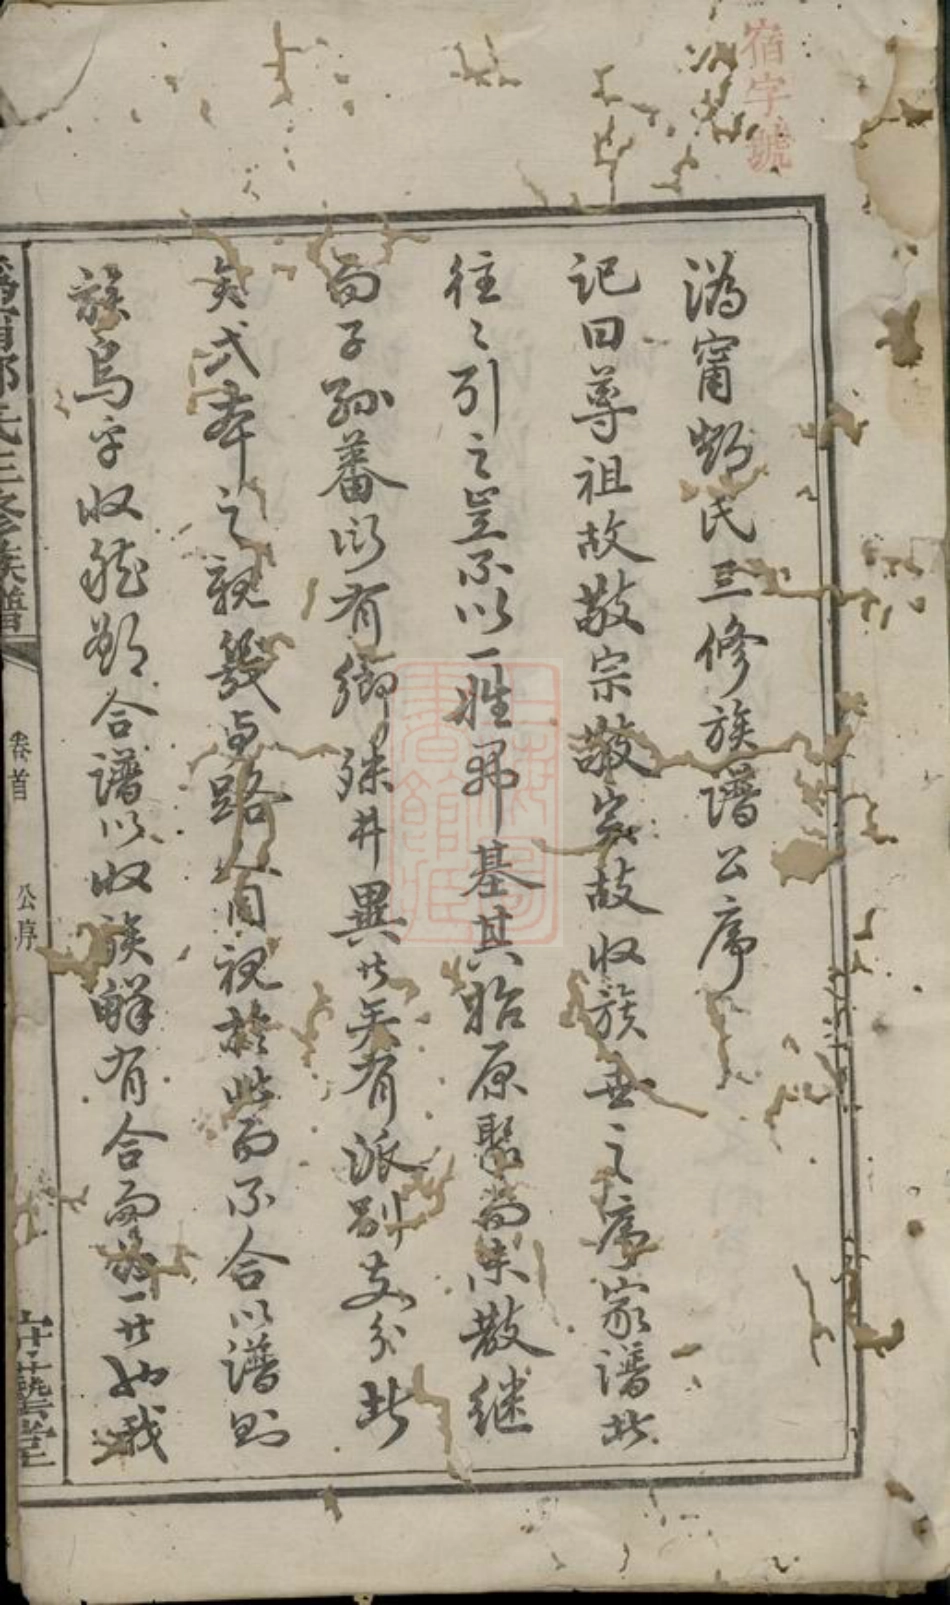 宿字號
溈甯鄧氏三修族譜公序
記曰尊祖故敬宗敬宗故收族世之序家譜者
往〻引之豈不以一姓肇基其始原聚而未散繼
而子孫蕃衍有鄉殊井異者矣有派別支分者
矣式本之親幾與路人同視於此而不合以譜則
族烏乎收然鄧合譜以收族鮮有合而為一者如我
溈甯鄧氏三修族譜
卷首
公序
守藝堂